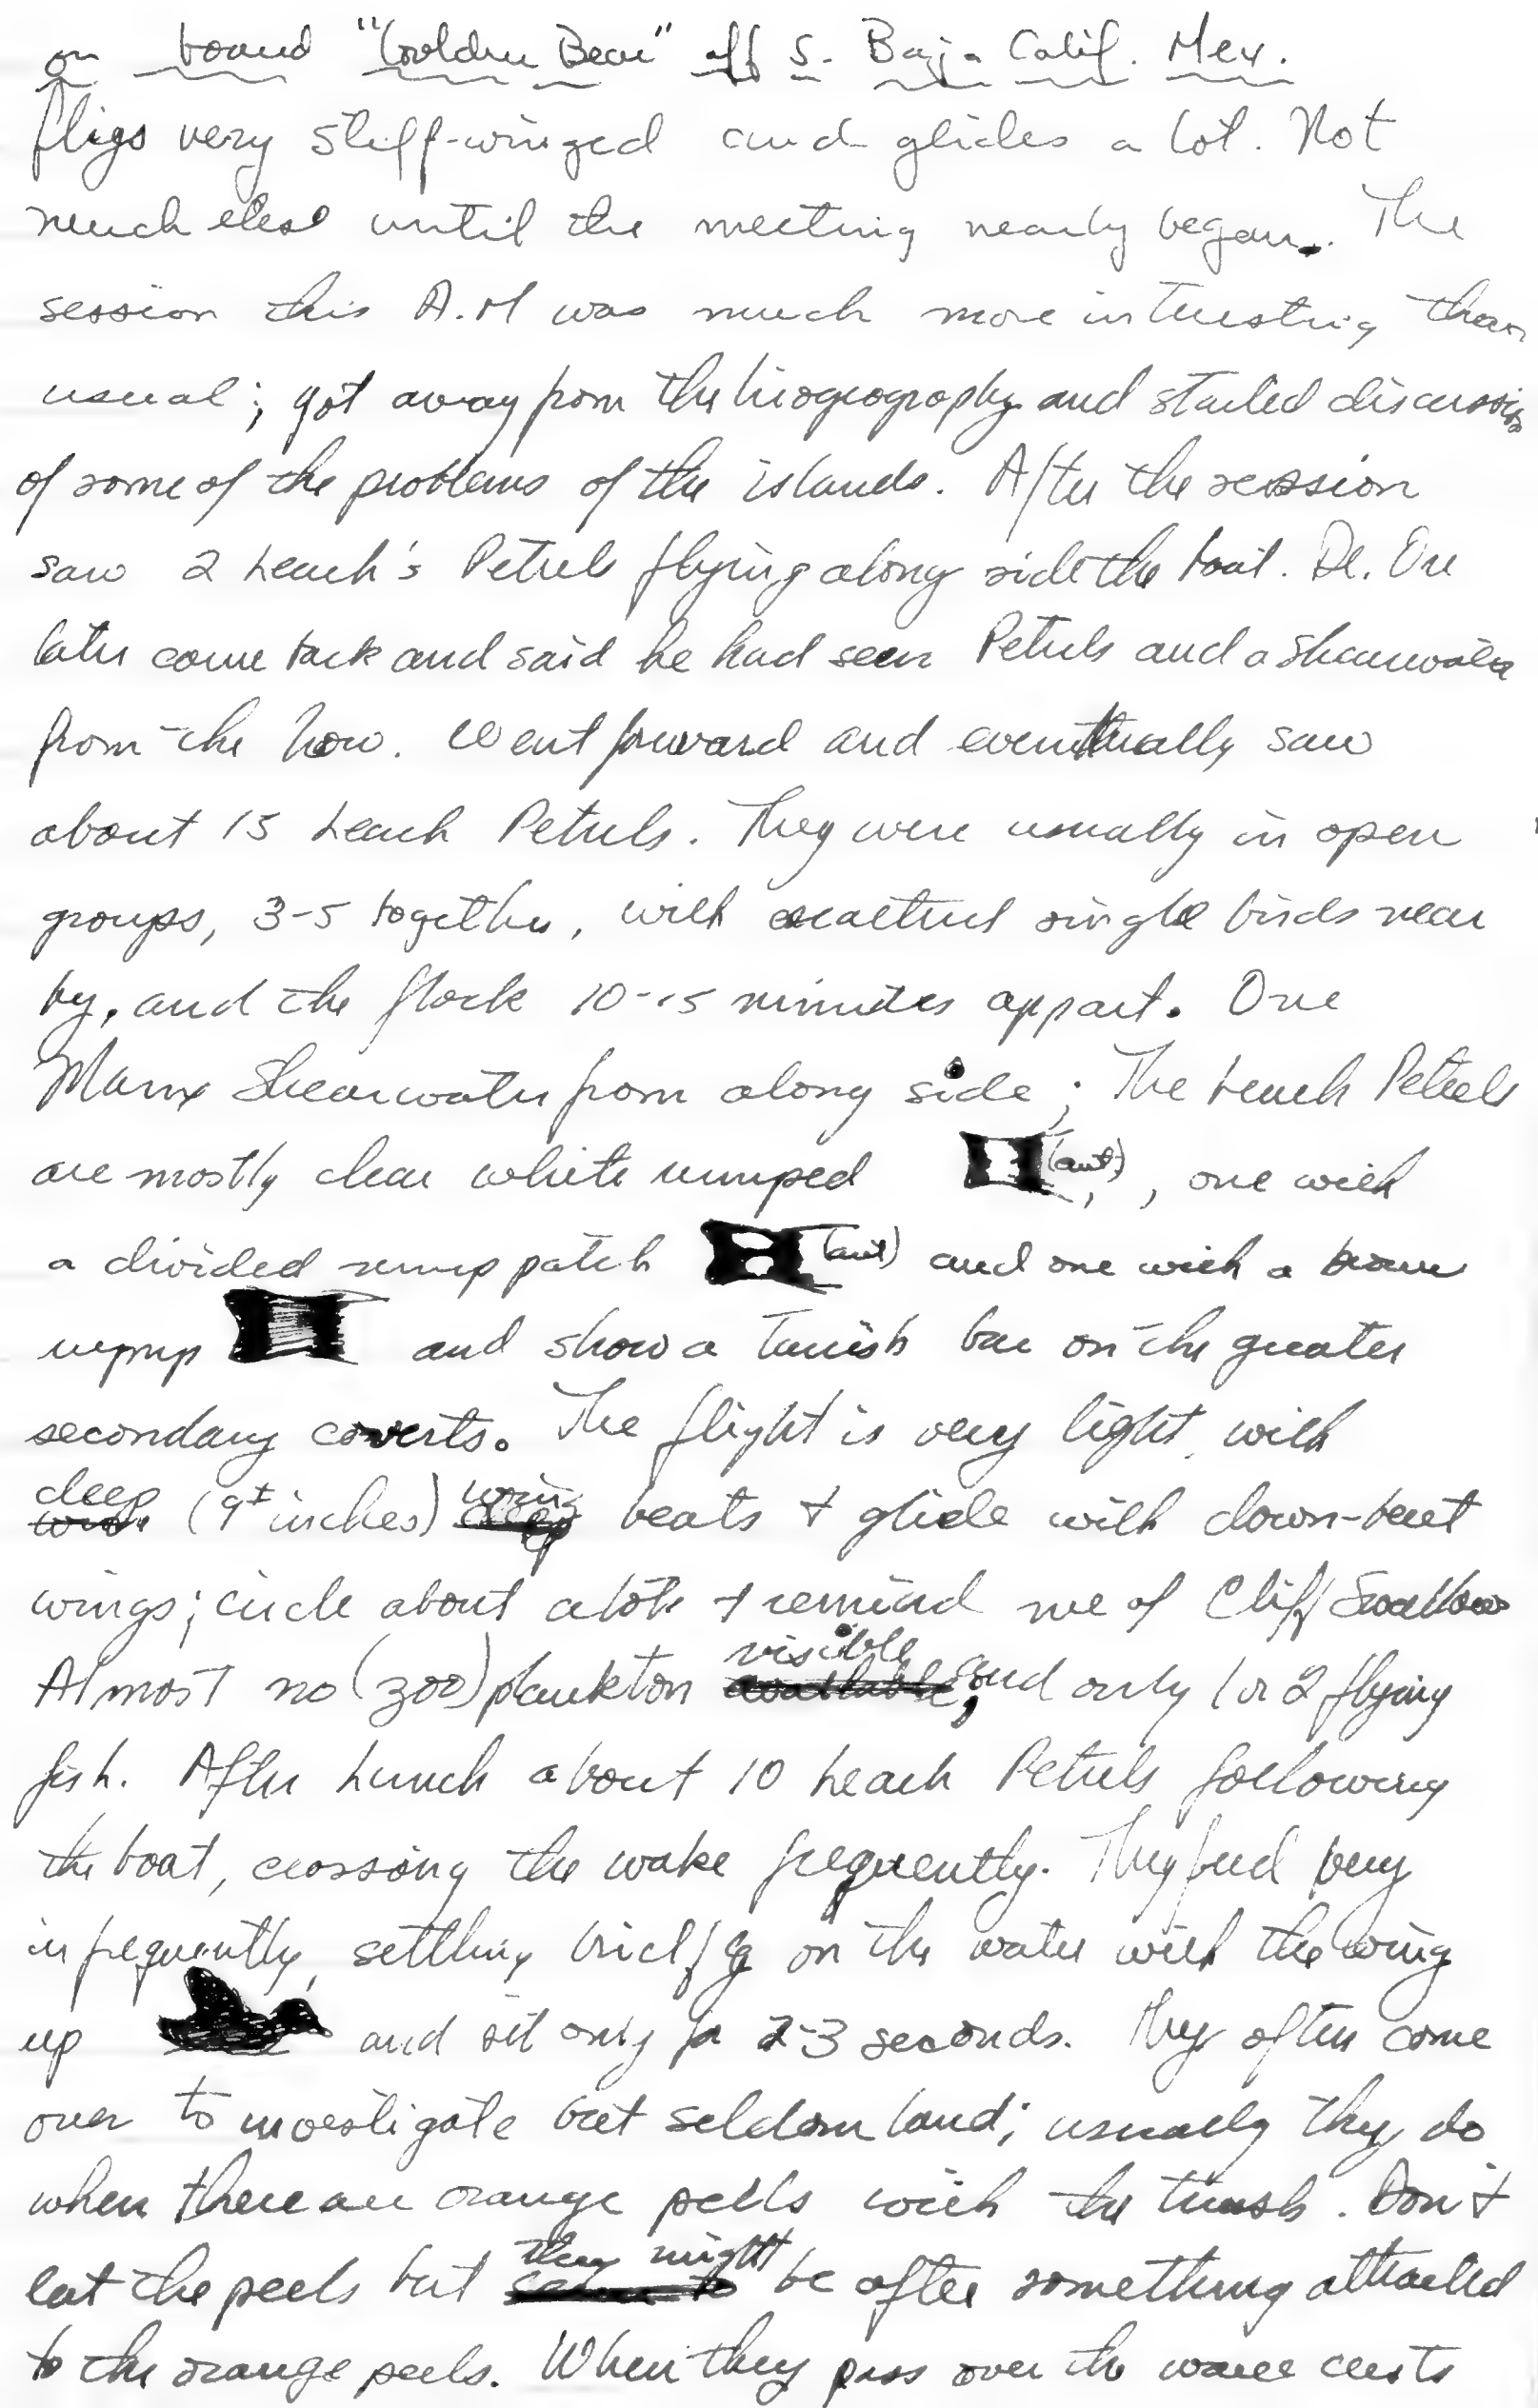 on board "Golden Bear" off S. Baja Calif. Mex.
fligs very stiff-winged and glides a lot. Not
much else until the meeting nearly began. The
session this A.M was much more interesting than
usual; got away from the biogeography and started discussion
of some of the problems of the islands. After the session
saw 2 Leach's Petrels flying along side the boat. Dr. Orr
later come back and said he had seen Petrels and a Shearwater
from the bow. Went forward and eventually saw
about 15 Leach Petrels. They were usually in open
groups, 3-5 together, with single birds near
by, and the flock 10-15 minutes appart. One
Manx Shearwater from along side; The Leach Petrels
are mostly clear white rumped (ant.), one with
a divided rump patch (ant) and one with a brown
rump and show a tanish bar on the greater
secondary coverts. The flight is very light, with
deep (9± inches) wing beats + glide with down-bent
wings; circle about alot + remind me of Cliff Swallows
Almost no (zoo)plankton visible; and only 1 or 2 flying
fish. After Lunch about 10 Leach Petrels following
the boat, crossing the wake frequently. They feed very
infrequently, settling briefly on the water with the wing
up and sit only for 2-3 seconds. They often come
over to investigate but seldom land; usually they do
when there are orange peels with the trash. Don't
eat the peels but they might be after something attracted
to the orange peels. When they pass over the wave crests